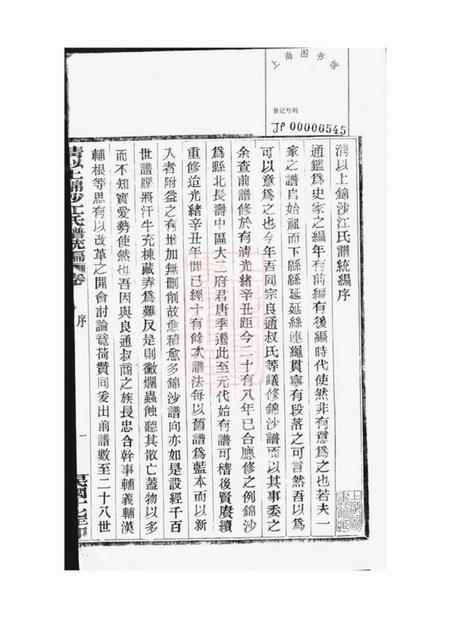 上海图书馆
登记号码
JP 00000545
清以上錦沙江氏譜統編序
通鑑爲史家之編年有前編有後編時代使然非有意爲之也若夫一
家之譜自始祖而下緜緜延延絲連繩貫寧有段落之可言然吾以爲
可以意爲之也今年吾同宗良通叔氏等議修錦沙譜而以其事委之
余查前譜修於有淸光緖辛丑距今二十有八年已合應修之例錦沙
爲縣北長壽中區大二府君唐季遷此至元代始有譜可稽後賢賡續
重修迨光緖辛丑年間已經十有餘次譜法每以舊譜爲藍本而以新
入者附益之有增加無刪削故愈積愈多錦沙譜向亦如是設經千百
世譜牒將汗牛充棟藏弆爲難反是則黴爛蟲蝕聽其散亡蓋物以多
而不知寶愛勢使然也吾因與良通叔商之族長忠合幹事輔義輔漢
輔根等思有以改革之開會討論竟荷贊同爰出前譜數至二十八世
清以上錦沙江氏譜統編 卷 序 一